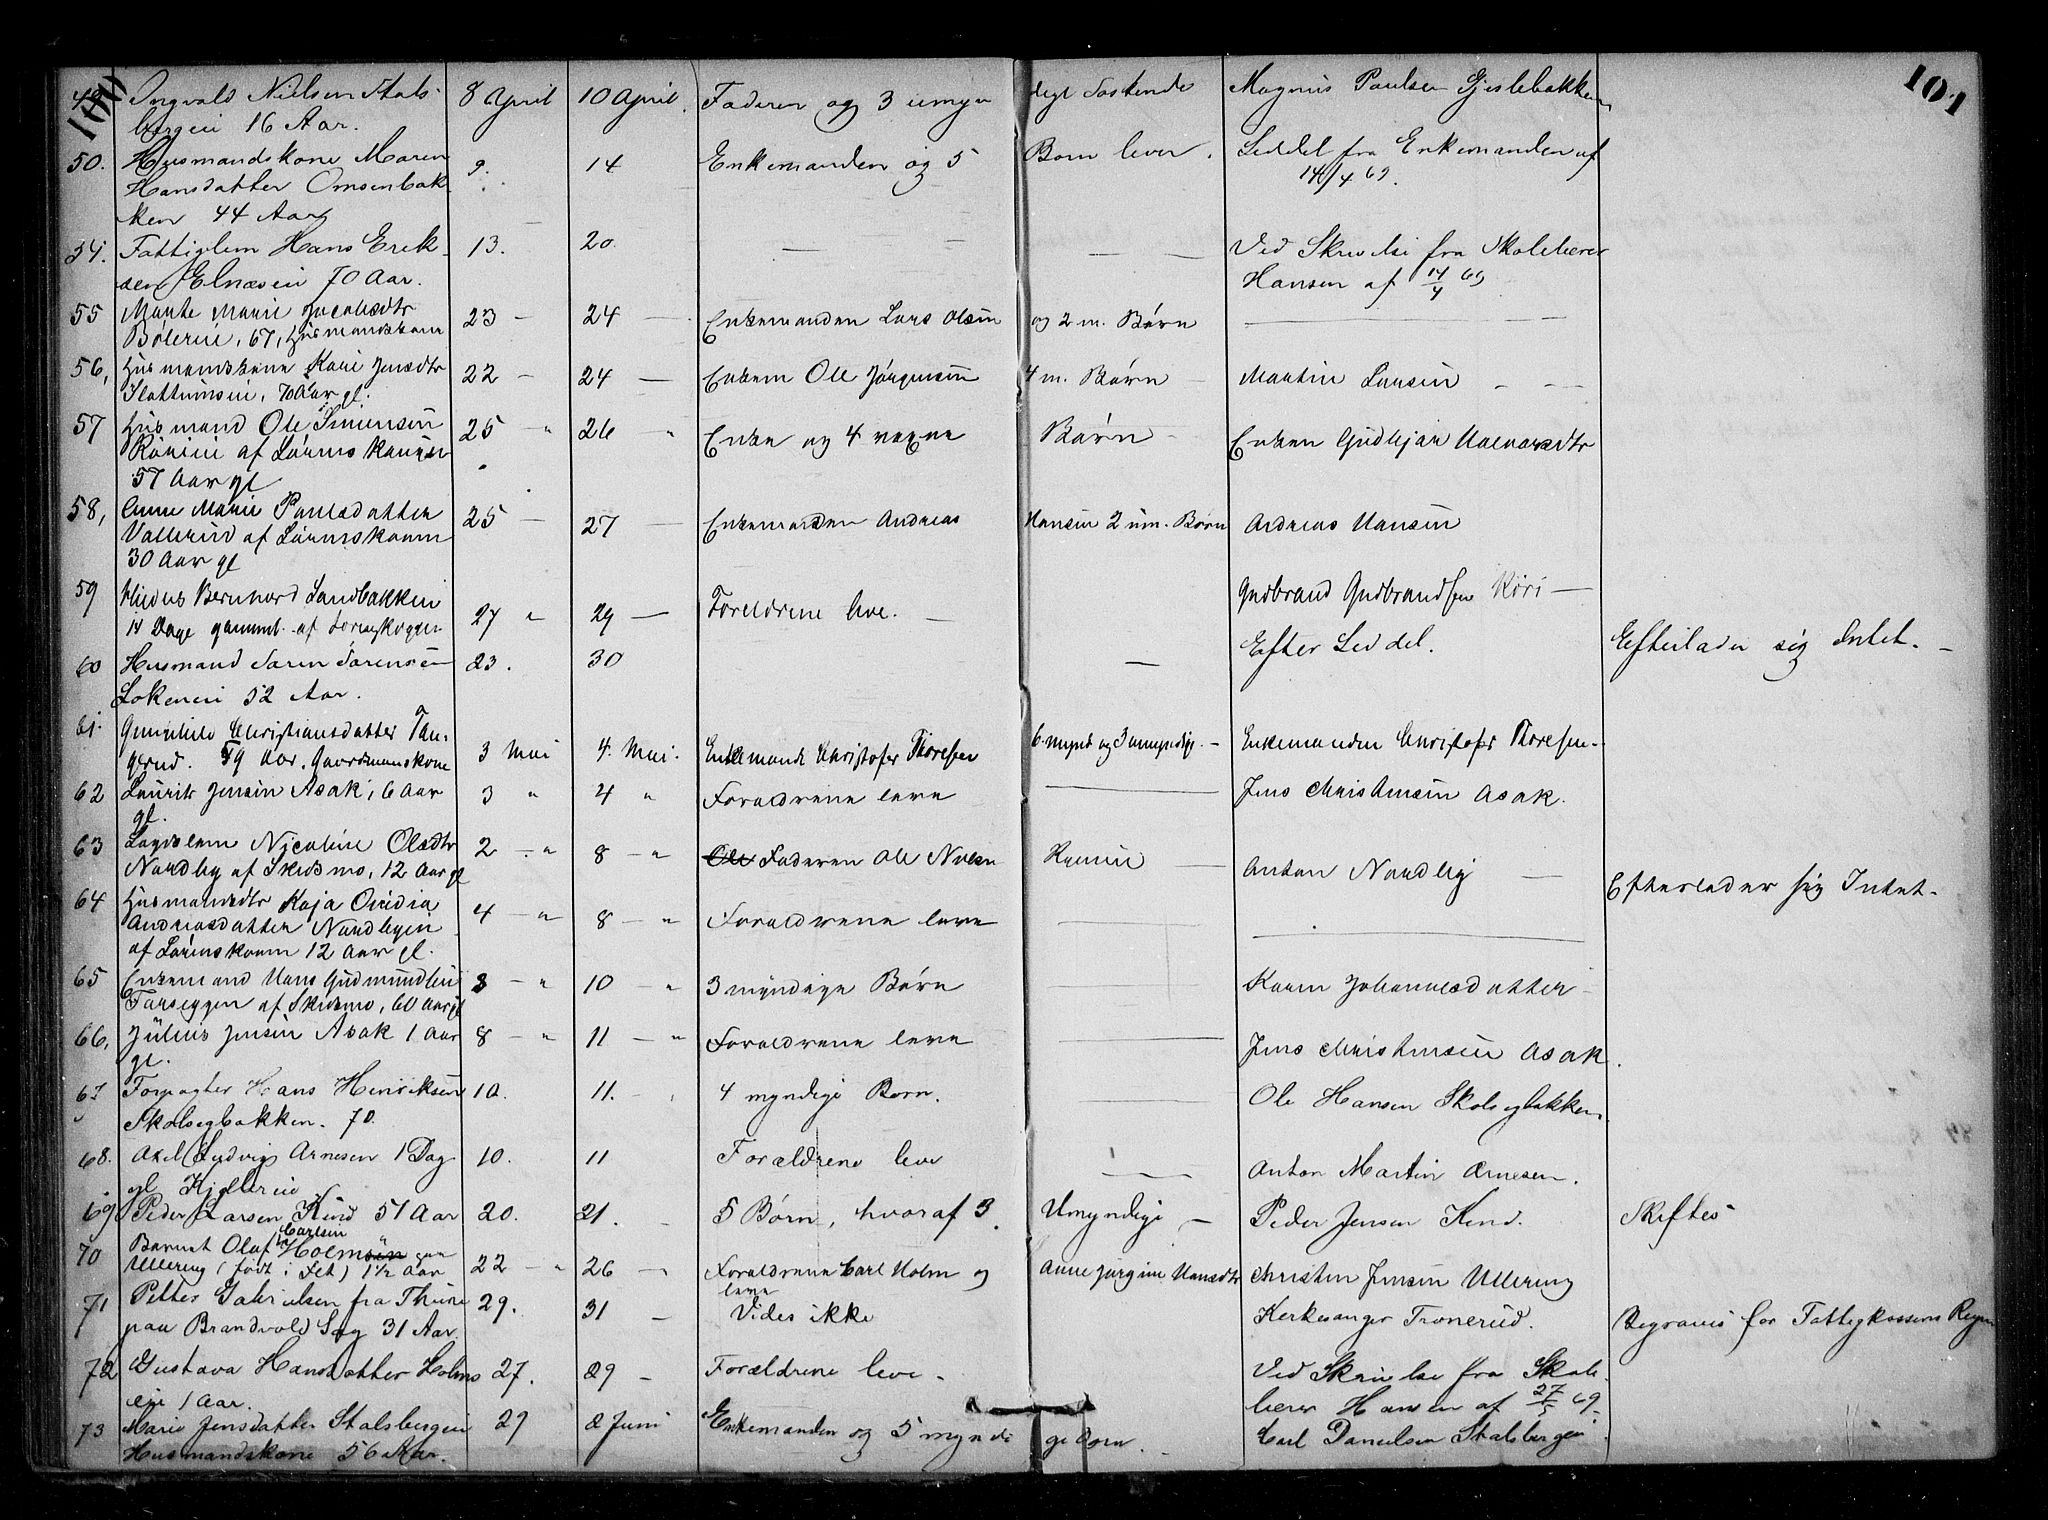 100
101
49. Ingvald Nielsen Stals- 8 April 10 April. Faderen og 3 umyn digt Søskende Magnus Paulsen Gjeslebakken
bergeie 16 Aar.
50. Husmandskone Maren 9. 14 Enkemanden og 5 Børn lever. Seddel fra Enkemanden af
Hansdatter Omsenbak 14/4 69.
ken 44 Aar
54. Fattiglem Hans Erik 13. 20. — — — — Ved Skrivelse fra Skolelærer
sen Elnæseie 70 Aar. Hansen af 14/4 69
55 Marte Marie Jacobsdtr 23 — 24 — Enkemanden Lars Olsen og 2 m. Børn — —
Bølerie, 67, Husmandskone
56, Husmandskone Kari Jensdtr 22 — 24 — Enkem Ole Jørgensen 4 m. Børn — Martin Larsen — —
Slattumseie, 70 Aar gl.
57 Husmand Ole Simensen 25 " 26 " Enke og 4 voxne Børn — Enken Gudbjør Halvorsdtr
Rørieie af Lørenskougen
57 Aar gl
58, Anne Marie Paulsdatter 25 — 27 — Enkemanden Andreas Hansen 2 um. Børn Andreas Hansen
Vallerud af Lørenskoum
30 Aar gl
59 Bernhard Sandbakken 27 " 29 — Foreldrene leve. — Gudbrand Gudbrandsen Röri —
14 Dage gammel af Lörenskoggen
60 Husmand Søren Sørensen 23. 30 — Efter Seddel. Efterlader sig Intet. —
Løkeneie 52 Aar.
61. Gunnhild Christiansdatter Tan- 3 Mai 4. Mai. Enkemand Christofer Thoresen 6 mynd og 3 umyndige. — Enkemanden Christofer Thoresen.
gerud. 59 Aar. Gaardmanskone
62 Laurits Jensen Asak, 6 Aar 3 " 4 " Forældrene leve — Jens Christensen Asak.
gl.
63 Lægdslem Nicoline Olsdtr 2 — " 8 — " Ole Faderen Ole Nilsen — Anton Nordby — Efterlader sig Intet.
Nordby af Skedsmo, 12 Aar gl
64 Husmandsdtr Kaja Ovidia 4 — " 8 — " Forældrene leve — —
Andreasdatter Nordbyeie
af Lørenskoum 12 Aar gl.
65 Enkemand Hans Gudmundsen 8 — " 10 — " 3 myndige Børn — Karen Johannesdatter
Farseggen af Skedsmo, 60 Aar gl
66, Julius Jensen Asak 1 Aar 8 — " 11 — " Forældrene leve — Jens Christensen Asak.
gl.
67 Forpagter Hans Henriksen 10. 11. 4 myndige Børn. — Ole Hansen Skolsegbakken
Skolsegbakken. 70.
68. Axel Ludvig Arnesen 1 Dag 10. 11 Forældrene leve — Anton Martin Arnesen.
gl Kjellereie
69 Peder Larsen Kind 51 Aar 20. 21. 5 Børn, hvoraf 3 Umyndige — Peder Jensen Kind. Skiftes
Carlsen
70 Barnet Olaf Holmsen paa 22 — " 26 — " Forældrene Carl Holm og Anne Jørgine Hansdtr Christen Jensen Ullering
Ullering (født i Fet) 1½ Aar leve
71 Petter Gabrielsen fra Thune 29. 31 — Vides ikke Kirkesanger Tronerud. Begraves for Fattigkassens Regn
paa Brandvold Sag 31 Aar.
72 Gustava Hansdatter Holms 27. 29 — Forældrene leve. Ved Skrivelse fra Skole
eie 1 Aar. lærer Hansen af 27/5 69.
73 Marie Jensdatter Stalsbergeie 29 2 Juni Enkemanden og 5 myndi ge Børn. Carl Danielsen Stalsbergeie
Husmandskone 56 Aar.